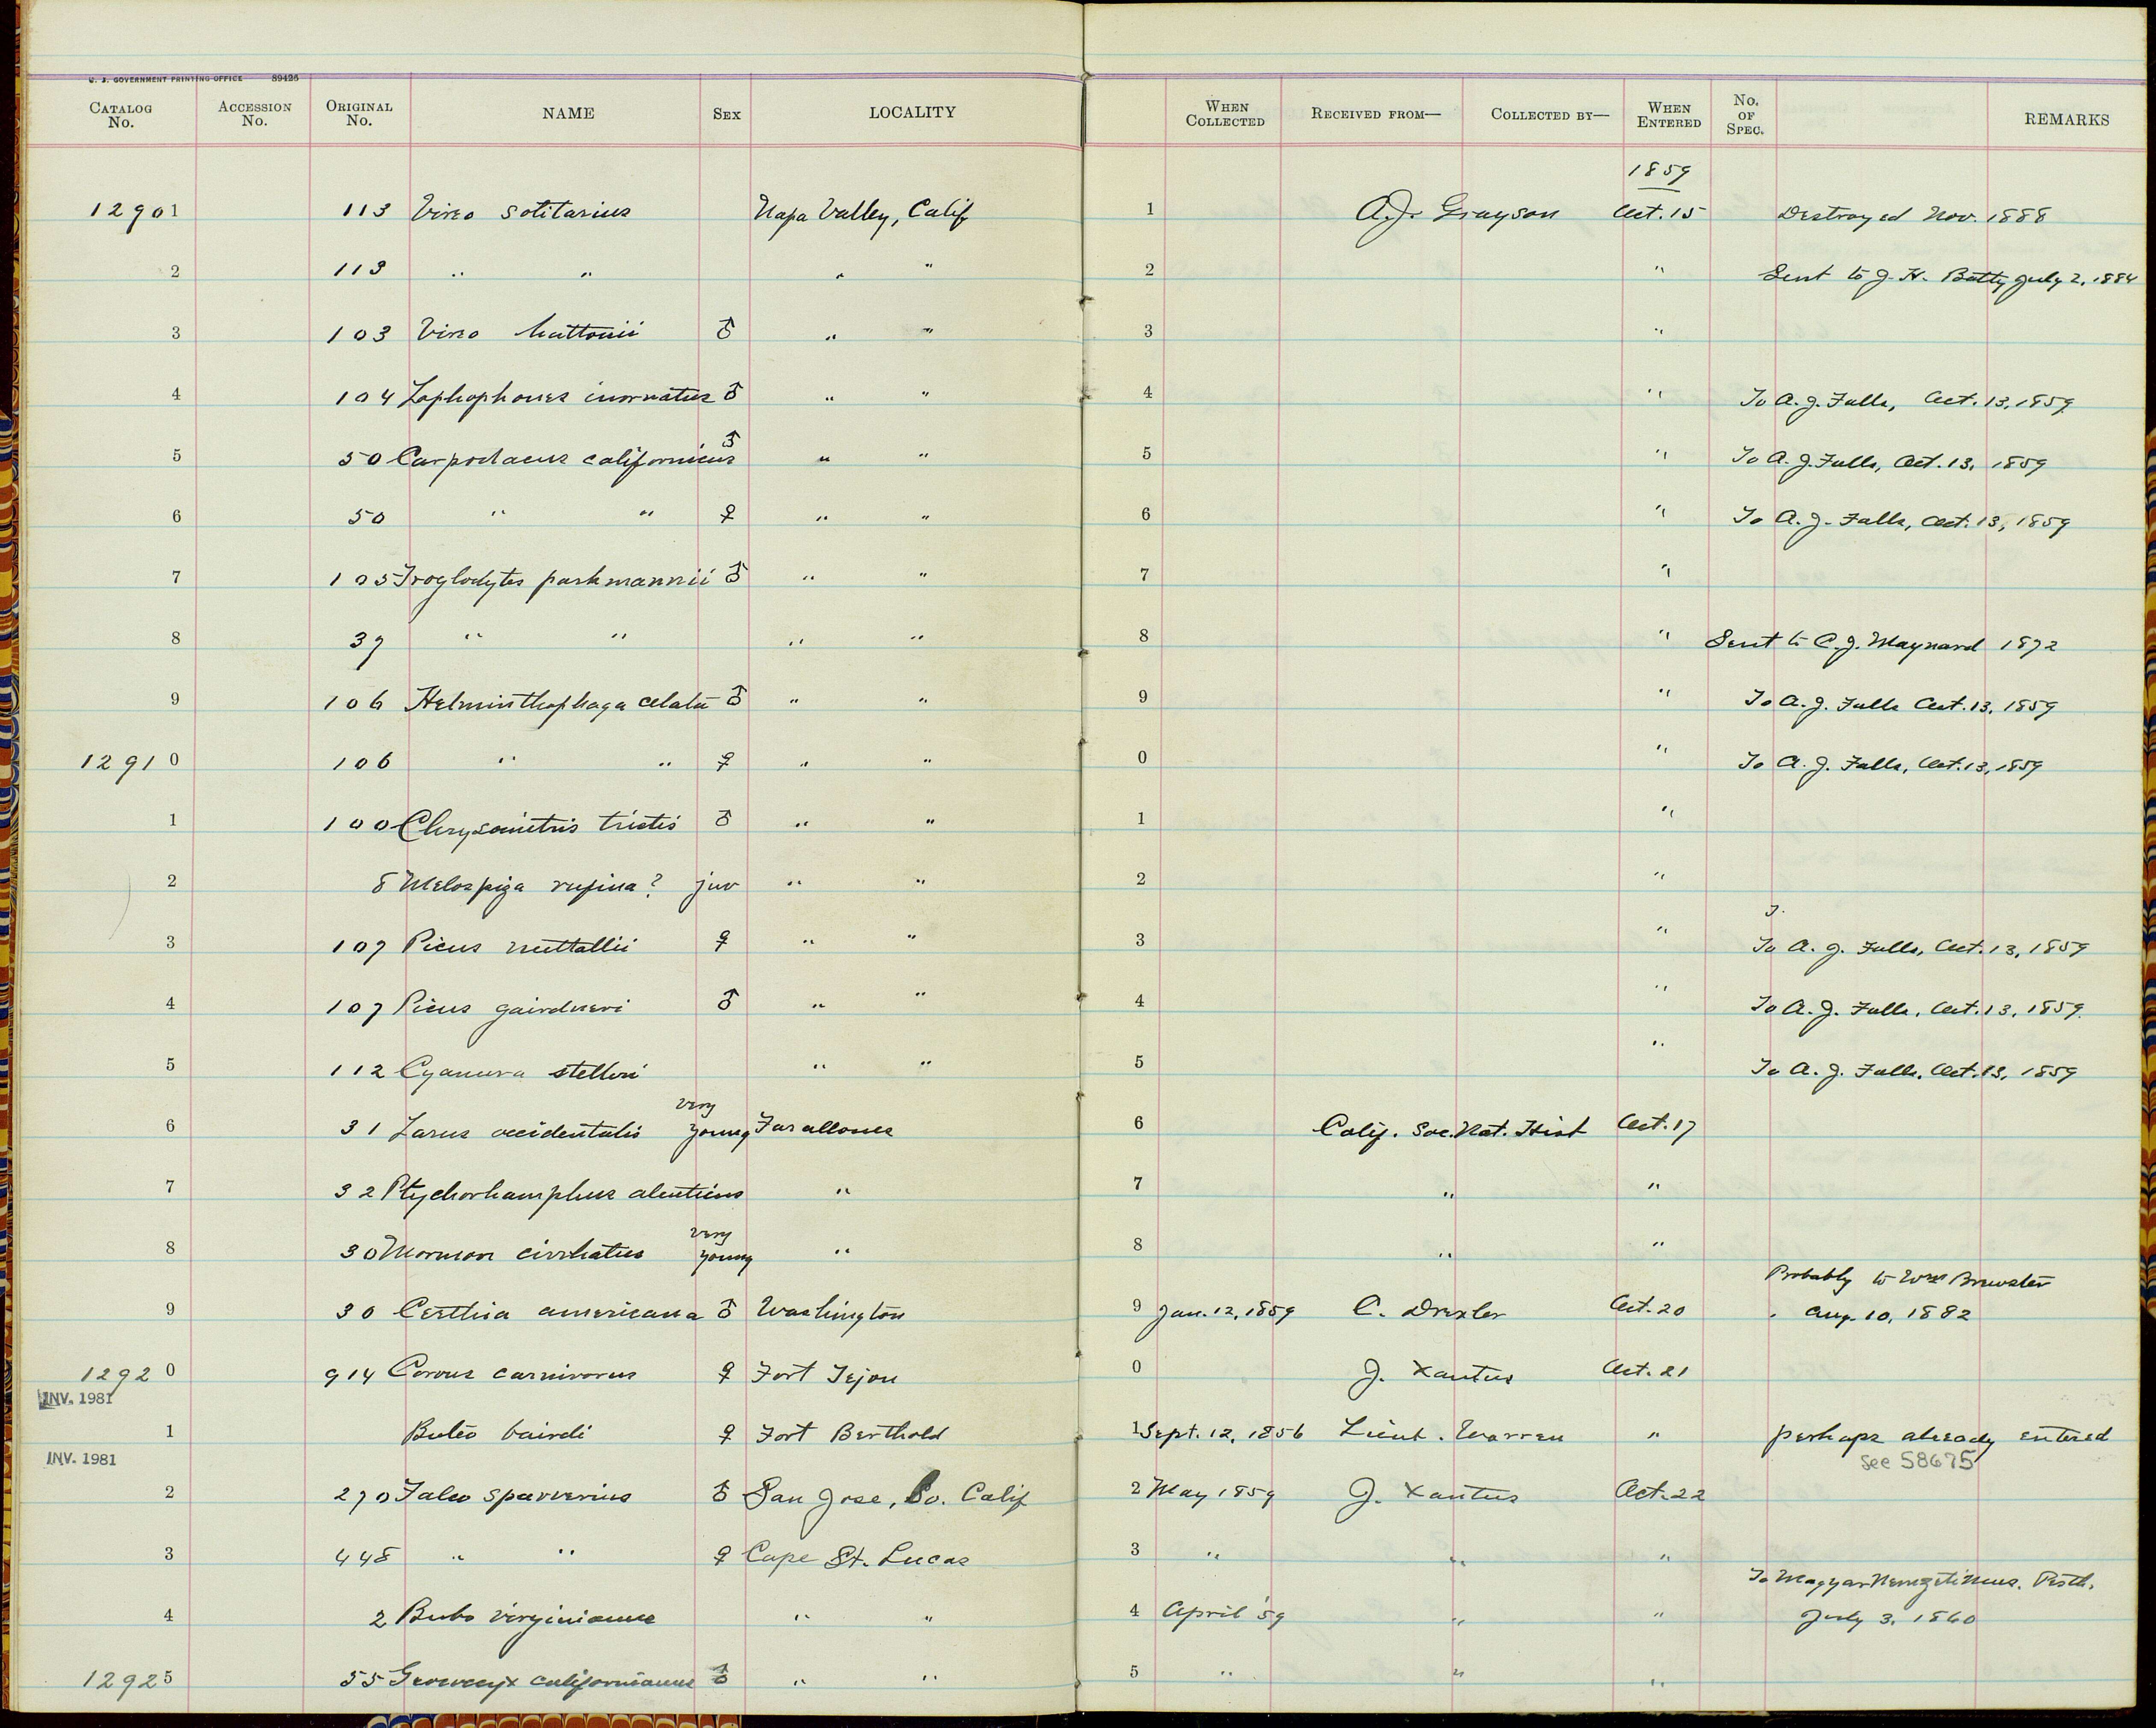 U. S. GOVERNMENT PRINTING OFFICE 89426
CATALOG No. ACCESSION No. ORIGINAL No. NAME SEX LOCALITY WHEN COLLECTED RECEIVED FROM— COLLECTED BY— WHEN ENTERED No. OF SPEC. REMARKS
1859
12901 113 Vireo solitarius Napa Valley, Calif 1 A.J. Grayson Oct. 15 Destroyed Nov. 1888
2 113 " " " " 2 " Sent to J. H. Batty July 2, 1884
3 103 Vireo huttonii ♂ " " 3 "
4 104 Lophophanes inornatus ♂ " " 4 " To A. J. Falls, Oct. 13, 1859
5 50 Carpodacus californicus ♂ " " 5 " To A. J. Falls, Oct. 13, 1859
6 50 " " ♀ " " 6 " To A. J. Falls, Oct. 13, 1859
7 105 Troglodytes parkmannii ♂ " " 7 "
8 37 " " " " 8 " Sent to C. J. Maynard 1872
9 106 Helminthophaga celata ♂ " " 9 " To A. J. Falls Oct. 13, 1859
12910 106 " " ♀ " " 0 " To A. J. Falls, Oct. 13, 1859
1 100 Chrysomitris tristis ♂ " " 1 "
2 8 Melospiza rufina? juv " " 2 "
3 107 Picus nuttallii ♀ " " 3 " To A. J. Falls, Oct. 13, 1859
4 107 Picus gairdneri ♂ " " 4 " To A. J. Falls, Oct. 13, 1859
5 112 Cyanura stelleri " " 5 " To A. J. Falls, Oct. 13, 1859
very
6 31 Larus occidentalis young Farallones 6 Calif. Soc. Nat. Hist Oct. 17
7 32 Ptychorhamphus aleuticus " 7 " "
very
8 30 Mormon cirrhatus young " 8 " "
Probably to Wm Brewster
9 30 Certhia americana ♂ Washington 9 Jan. 12, 1859 C. Drexler Oct. 20 Aug. 10, 1882
12920 914 Corvus carnivorus ♀ Fort Tejon 0 J. Xantus Oct. 21
INV. 1981
1 Buteo bairdi ♀ Fort Berthold 1 Sept. 12, 1856 Lieut. Warren " perhaps already entered
INV. 1981 see 58675
2 270 Falco sparverius ♂ San Jose, Lo. Calif 2 May 1859 J. Xantus Oct. 22
3 448 " " ♀ Cape St. Lucas 3 " " "
To Magyar Nemzeti Mus. Pesth.
4 2 Bubo virginianus " " 4 April '59 " " July 3, 1860
12925 55 Geococcyx californianus ♂ " " 5 " " "